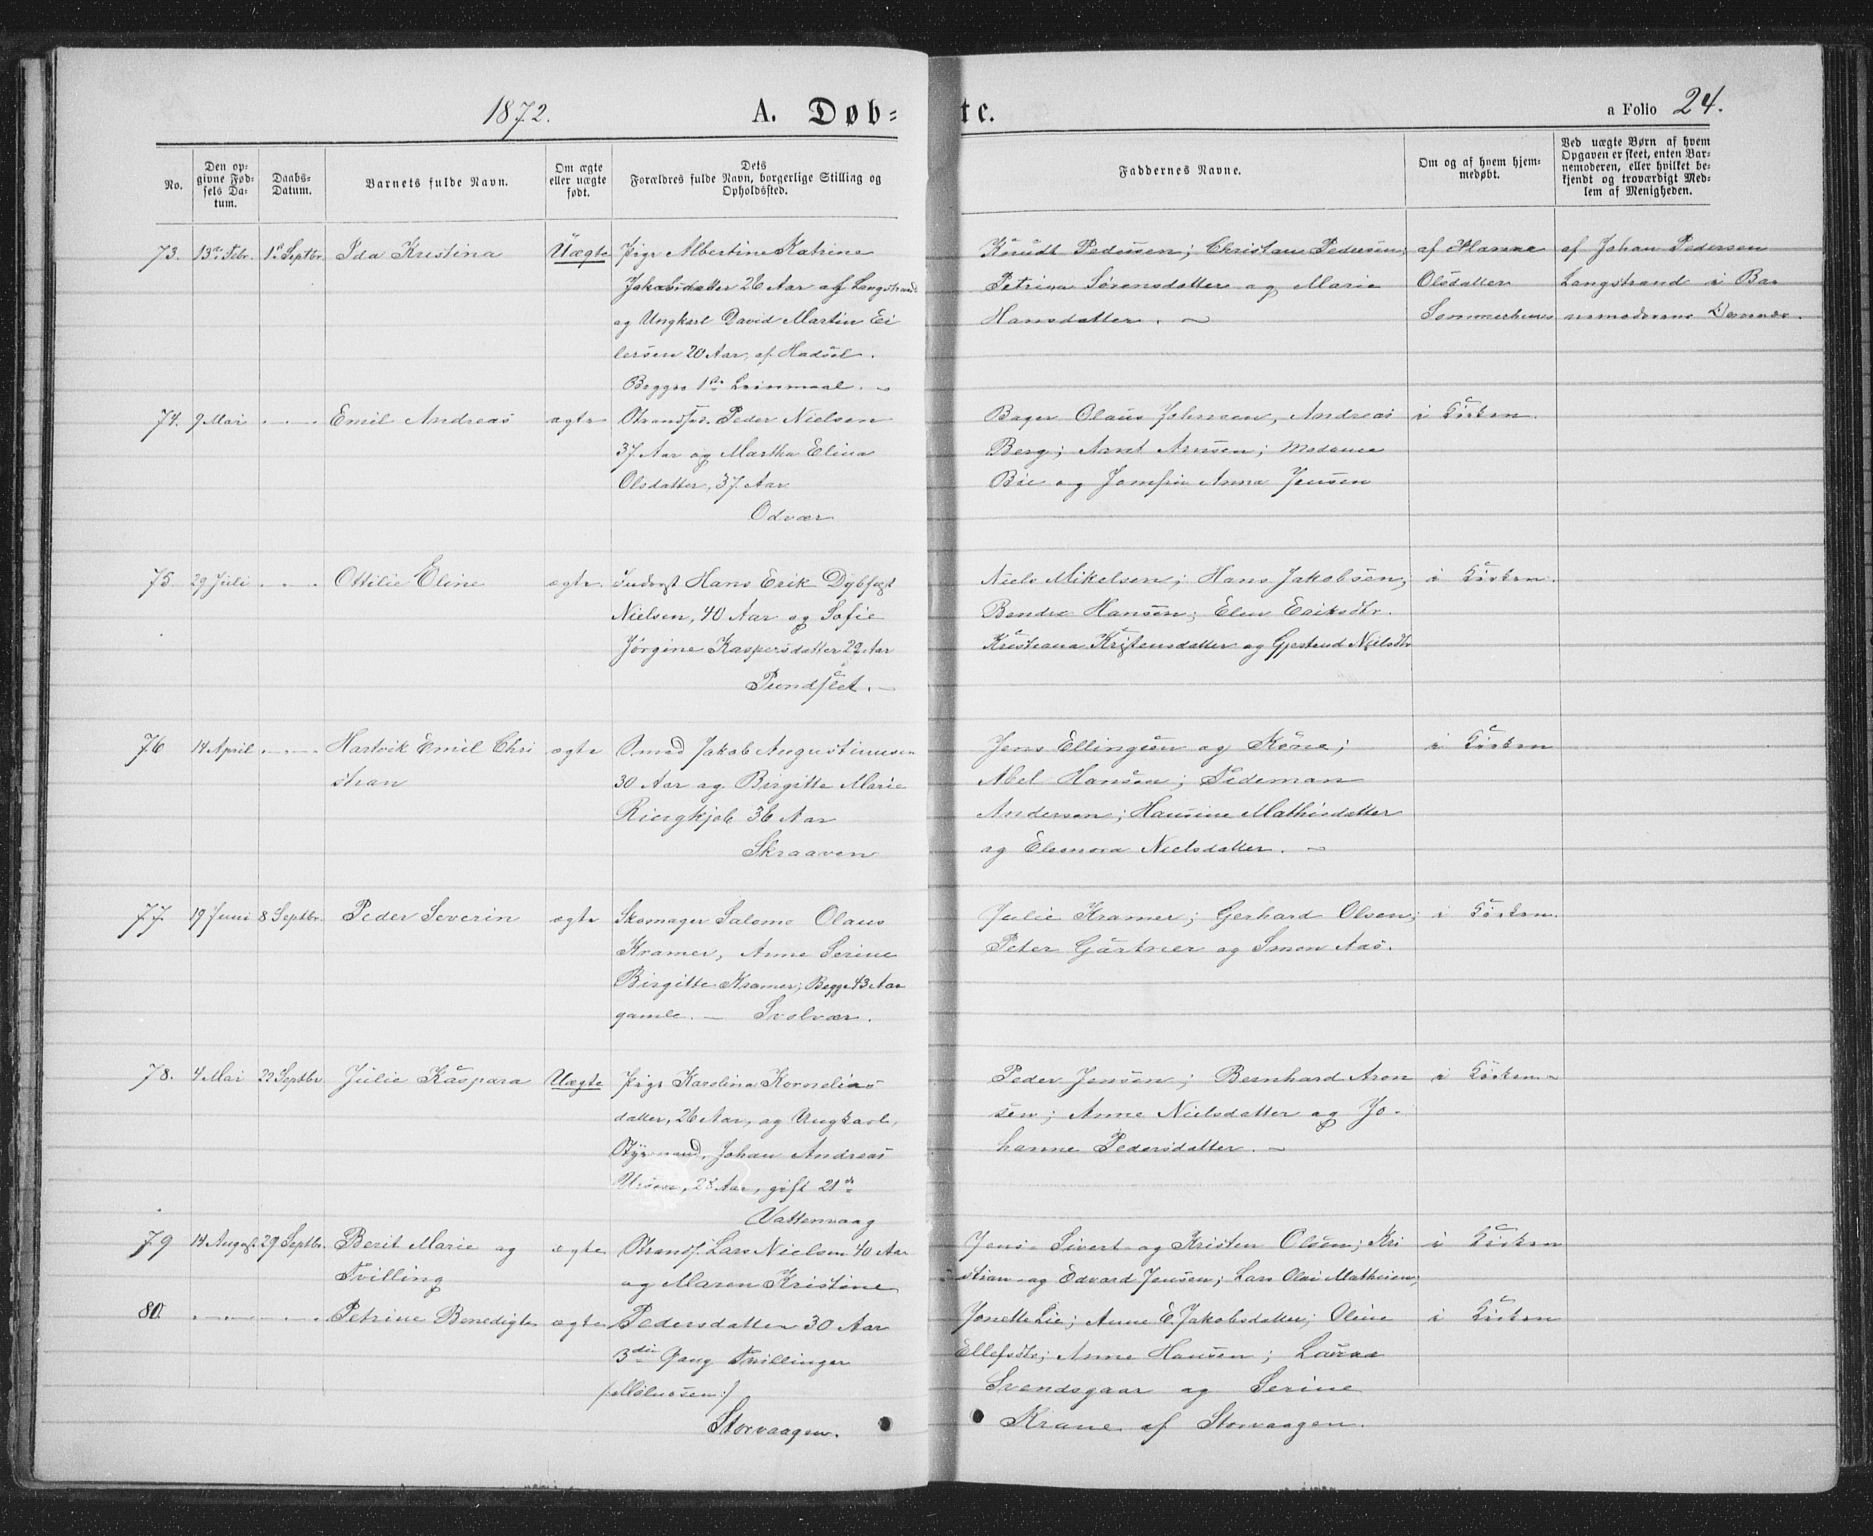 1872. A. Døb= te. a Folio 24.
No.
Den op-
givne Fød-
sels Da-
tum.
Daabs-
Datum.
Barnets fulde Navn.
Om ægte
eller uægte
født.
Dets
Forældres fulde Navn, borgerlige Stilling og
Opholdssted.
Faddernes Navne.
Om og af hvem hjem-
medøbt.
Ved uægte Børn af hvem
Opgaven er skeet, enten Bar-
nemoderen, eller hvilket be-
kjendt og troværdigt Med-
lem af Menigheden.
73. 13de Febr. 1ste Septbr. Ida Kristina Uægte
Pige Albertine Katrine
Jakobsdatter 26 Aar af Langstrand
og Ungkarl David Martin Ei
lersen 20 Aar, af Hadsel.
Begges 1ste Leiermaal.
Knudt Pedersen; Christian Pedersen;
Petrina Sørensdatter og Marie
Hansdatter.
af Hanna
Olsdatter
af Johan Pedersen
Langstrand i Bar
nemoderens
74. 9 Mai Emil Andreas ægte
Strands. Peder Nielsen
37 Aar og Martha Elina
Olsdatter, 37 Aar
Odvær
Bager Olaus Johnsen, Andreas
Berg; Arnt Arnsen; Madame
Bie og Jomfru Anna Jensen
i Kirken.
75. 29 Juli Ottilie Eline ægte.
Inderst Hans Erik Dybfest
Nielsen, 40 Aar og Sofie
Jørgine Kaspersdatter 22 Aar
Pundslet.
Niels Mikelsen; Hans Jakobsen;
Bendix Hansen; Elen Eriksdtr.
Kristiana Kristensdatter og Gjertrud Nielsdtr
i Kirken.
76 14 April Hartvik Emil Chri
stian
ægte
Jakob Augustinussen
30 Aar og Birgitte Marie
Ringkjøb 36 Aar
Skraaven
Jens Ellingsen og Kone;
Abel Hansen; Tideman
Andersen; Hansine Mathisdatter
og Elenora Nielsdatter.
i Kirken
77. 19 Juni 8 Septbr. Peder Severin ægte
Skomager Salomo Olaus
Kramer, Anne Serine
Birgitte Kramer, Begge 43 Aar
gamle. Svolvær.
Julie Kramer; Gerhard Olsen;
Peter Gårtner og Smon Aas.
i Kirken.
78. 4 Mai 22 Septbr Julie Kaspara Uægte
Pige Karolina Kornelius
datter, 26 Aar, og Ungkarl,
Styrmand, Johan Andreas
28 Aar, gift 21de
Vattenvaag
Peder Jensen; Bernhard Aron
sen; Anne Nielsdatter og Jo-
hanne Pedersdatter.
i Kirken.
79 14 August 29 Septbr. Berit Marie og
Tvilling
ægte
Strands. Lars Nielsen 40 Aar
og Maren Kristine
Jens Sivert og Kristen Olsen; Kri
stian og Edvard Jensen; Lars Olai Mathisen;
i Kirken
80. Petrine Benedigte ægte
Pedersdatter 30 Aar
3die Gang Tvillinger
/:Molnosen:/
Storvaagen.
Jonette Lie; Anne E. Jakobsdatter; Oline
Ellefsdtr; Anne Hansen; Lauraa
Svendsgaar og Serine
Krane af Storvaagen.
i Kirken